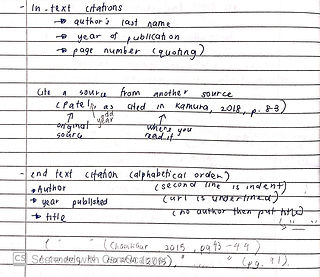 - In-text citations
→ author's last name
→ year of publication
→ page number (quoting)
Cite a source from another source
(Patel, as cited in Kamura, 2018, p. 83)
add
year
original
source
where you
read it
- end text citation (alphabetical order)
→ Author (second line is indent)
→ year published (url is underlined)
→ title (no author then put title)
2015
CS